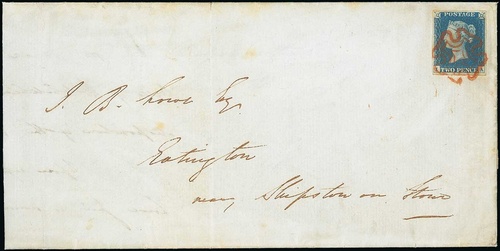 POSTAGE
TWO PENCE
J. B. Esq.
Eatington
near, Shipston on Stour